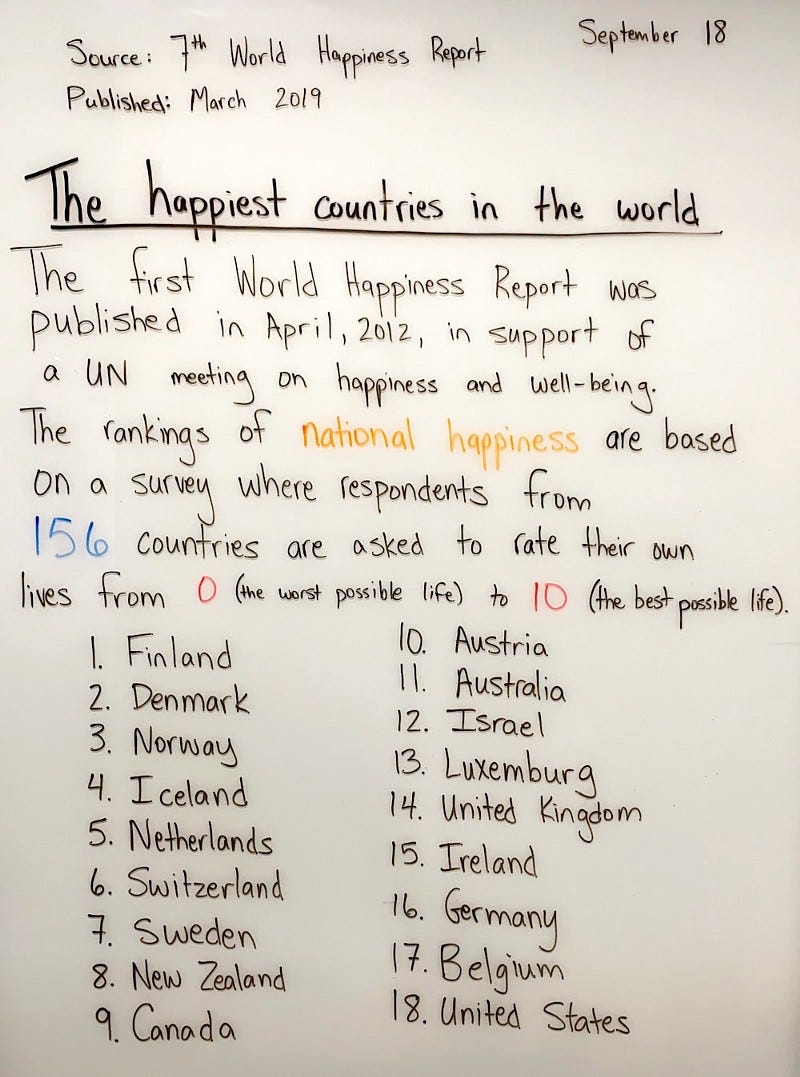 September 18
Source: 7th World Happiness Report
Published: March 2019
The happiest countries in the world
The first World Happiness Report was
published in April, 2012, in support of
a UN meeting on happiness and well-being.
The rankings of national happiness are based
on a survey where respondents from
156 countries are asked to rate their own
lives from 0 (the worst possible life) to 10 (the best possible life).
1. Finland
2. Denmark
3. Norway
4. Iceland
5. Netherlands
6. Switzerland
7. Sweden
8. New Zealand
9. Canada
10. Austria
11. Australia
12. Israel
13. Luxemburg
14. United Kingdom
15. Ireland
16. Germany
17. Belgium
18. United States